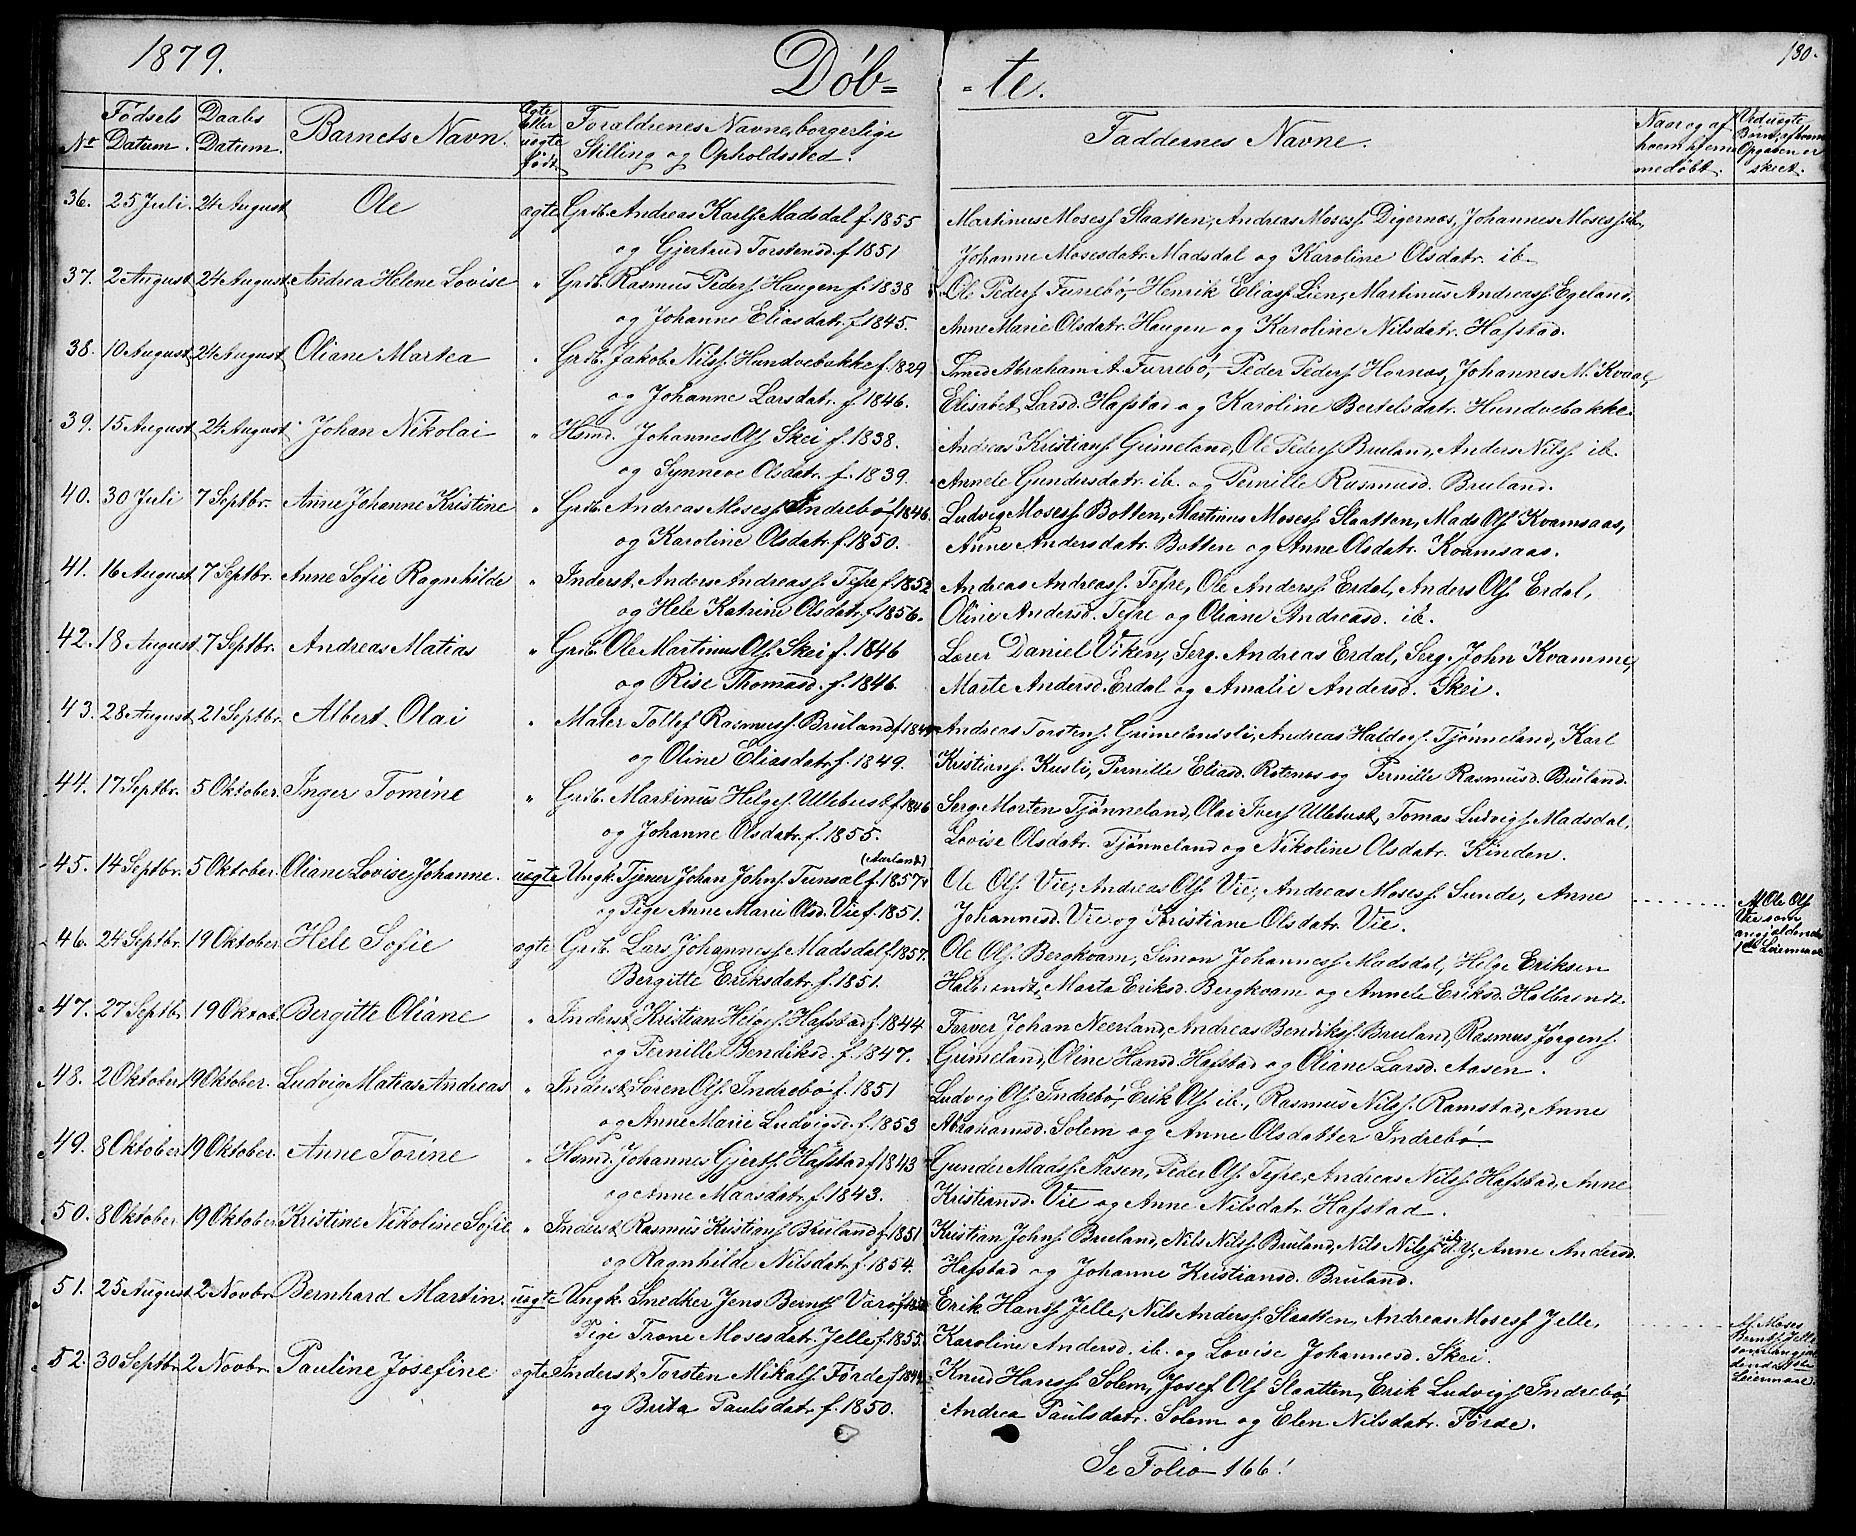 1879.
Døb=
=te.
180.
No
Fødsels Datum.
Daabs Datum.
Barnets Navn.
Ægte eller uægte født.
Forældrenes Navne, borgerlige Stilling og Opholdssted.
Faddernes Navne.
Naar og af hvem hjemmedøbt.
Ved uægte Børn, af hvem Opgaven er skeet.
36. 25 Juli. 24 August Ole ægte Grdb. Andreas Karls. Madsdal f. 1855
og Gjertrud Torstensd. f. 1851
Martinus Moses. Slaatten, Andreas Moses. Digernæs, Johannes Moses. ib.,
Johanne Mosesdatr. Madsdal og Karoline Olsdatr. ib.
37. 2 August 24 August Andrea Helene Lovise " Grdb. Rasmus Peders. Haugen f. 1838
og Johanne Eliasdatr. f. 1845.
Ole Peders. Furrebø, Henrik Elias. Lien, Martinus Andreas. Egeland,
Anne Marie Olsdatr. Haugen og Karoline Nilsdatr. Hafstad.
38. 10 August 24 August Oliane Martea " Grdb. Jakob Nils. Hundvebakke f. 1829
og Johanne Larsdatr. f. 1846.
Smed Abraham A. Furrebø, Peder Peders. Hornæs, Johannes M. Kvaal,
Elisabet Larsd. Hafstad og Karoline Bertelsdatr. Hundvebakke.
39. 15 August 24 August Johan Nikolai " Hsmd. Johannes Ols. Skei f. 1838.
og Synneve Olsdatr. f. 1839.
Andreas Kristians. Grimeland, Ole Peders. Bruland, Anders Nils. ib.
Annele Gundersdatr. ib. og Pernille Rasmusd. Bruland.
40. 30 Juli 7 Septbr. Anne Johanne Kristine " Grdb. Andreas Moses. Indrebø f. 1846.
og Karoline Olsdatr. f. 1850.
Ludvig Moses. Botten, Martinus Moses. Slaatten, Mads Ols. Kvamsaas,
Anne Andersdatr. Botten og Anne Olsdatr. Kvamsaas.
41. 16 August 7 Septbr. Anne Sofie Ragnhilde " Inderst. Anders Andreas. Tefre f. 1852
og Hele Katrine Olsdatr. f. 1856.
Andreas Andreas. Tefre, Ole Anders. Erdal, Anders Ols. Erdal,
Oline Andersd. Tefre og Oliane Andreasd. ib.
42. 18 August 7 Septbr. Andreas Matias " Grdb. Ole Martinus Ols. Skei f. 1846
og Rise Thomasd. f. 1846.
Lærer Daniel Viken, Serg. Andreas Erdal, Serg. John Kvamme,
Marte Andersd. Erdal og Amalie Andersd. Skei.
43. 28 August 21 Septbr. Albert Olai " Maler Tollef Rasmus. Bruland
og Oline Eliasdatr. f. 1849.
Andreas Torstens. Grimelandsli, Andreas Haldors. Tjønneland, Karl
Kristians. Kusli, Pernille Eliasd. Rotenæs og Pernille Rasmusd. Bruland.
44. 17 Septbr. 5 Oktober. Inger Tomine " Grdb. Martinus Helges. Ullebust f. 1846
og Johanne Olsdatr. f. 1855.
Serg. Morten Tjønneland, Olai Ivers. Ullebust, Tomas Ludvigs. Madsdal,
Lovise Olsdatr. Tjønneland og Nikoline Olsdatr. Kinden.
45. 14 Septbr. 5 Oktober. Oliane Lovise Johanne. uægte Ungk. Tjener Johan Johns. Tunsal f. 1857. (Aurland)
og Pige Anne Marie Olsd. Vie f. 1851.
Ole Ols. Vie, Andreas Ols. Vie, Andreas Moses. Sunde, Anne
Johannesd. Vie og Kristiane Olsdatr. Vie.
Af Ole Ols.
Vie som
angjældende
1ste Leiermaal
46. 24 Septbr. 19 Oktober. Hele Sofie ægte Grdb. Lars Johannes. Madsdal f. 1857.
Bergitte Eriksdatr. f. 1851.
Ole Ols. Bergkvam, Simon Johannes. Madsdal, Helge Eriksen
Halbrendt, Marta Eriksd. Bergkvam og Annele Eriksd. Halbrendt.
47. 27 Septbr. 19 Oktob. Bergitte Oliane " Inderst. Kristian Helges. Hafstad f. 1844.
og Pernille Bendiksd. f. 1847.
Farver Johan Neerland, Andreas Bendiks. Bruland, Rasmus Jørgens.
Grimeland, Oline Hansd. Hafstad og Oliane Larsd. Aasen.
48. 2 Oktober 19 Oktober. Ludvig Matias Andreas " Inderst. Søren Ols. Indrebø f. 1851
og Anne Marie Ludvigsd. f. 1853
Ludvig Ols. Indrebø, Erik Ols. ib., Rasmus Nils. Ramstad, Anne
Abrahamsd. Solem og Anne Olsdatter Indrebø
49. 8 Oktober 19 Oktober. Anne Torine " Hsmd. Johannes Gjerts. Hafstad f. 1843
og Anne Marsdatr. f. 1843.
Gunder Mads. Aasen, Peder Ols. Tefre, Andreas Nils. Hafstad, Anne
Kristiansd. Vie og Anne Nilsdatr. Hafstad.
50. 8 Oktober 19 Oktober Kristine Nikoline Sofie " Inderst. Rasmus Kristians. Bruland f. 1851
og Ragnhilde Nilsdatr. f. 1854.
Kristian Johns. Bruland, Nils Nils. Bruland, Nils Nils. ib. d. Y., Anne Andersd.
Hafstad og Johanne Kristiansd. Bruland.
51. 25 August 2 Novbr. Bernhard Martin. uægte Ungk. Snedker Jens Bernts. Varø
Pige Trone Mosesdatr. Jelle f. 1855.
Erik Hans. Jelle, Nils Anders. Slaatten, Andreas Moses. Jelle,
Karoline Andersd. ib. og Lovise Johannesd. Skei.
Af Moses
Bernts. Jelle
som angjældende 1ste
Leiermaal.
52. 30 Septbr. 2 Novbr. Pauline Josefine ægte Inderst. Torsten Mikals. Førde
og Brita Paulsdatr. f. 1850.
Knud Hans. Solem, Josef Ols. Slaatten, Erik Ludvigs. Indrebø,
Andrea Paulsdatr. Solem og Elen Nilsdatr. Førde.
Se Folio 166!